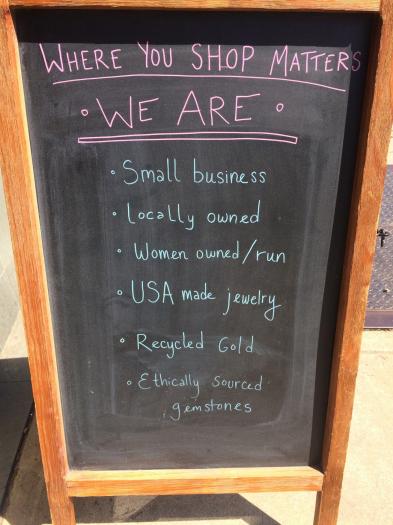 WHERE YOU SHOP MATTERS
◦ WE ARE ◦
◦ Small business
◦ Locally owned
◦ Women owned/run
◦ USA made jewelry
◦ Recycled Gold
◦ Ethically sourced
gemstones